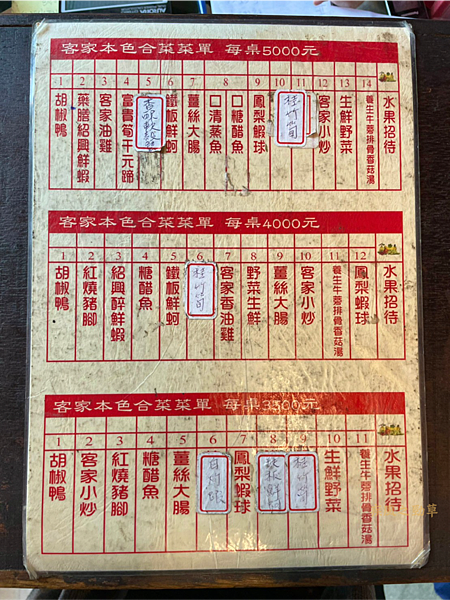 客家本色合菜菜單 每桌5000元
1 2 3 4 5 6 7 8 9 10 11 12 13 14
胡椒鴨
藥膳紹興鮮蝦
客家油雞
富貴筍干元蹄
鐵板鮮蚵
薑絲大腸
口清蒸魚
口糖醋魚
鳳梨蝦球
桂竹筍
客家小炒
生鮮野菜
養生牛蒡排骨香菇湯
水果招待
客家本色合菜菜單 每桌4000元
1 2 3 4 5 6 7 8 9 10 11 12
胡椒鴨
紅燒豬腳
紹興醉鮮蝦
糖醋魚
鐵板鮮蚵
桂竹筍
客家香油雞
野菜生鮮
薑絲大腸
客家小炒
養生牛蒡排骨香菇湯
鳳梨蝦球
水果招待
客家本色合菜菜單 每桌3300元
1 2 3 4 5 6 7 8 9 10 11
胡椒鴨
客家小炒
紅燒豬腳
糖醋魚
薑絲大腸
鳳梨蝦球
桂竹筍
生鮮野菜
養生牛蒡排骨香菇湯
水果招待
草